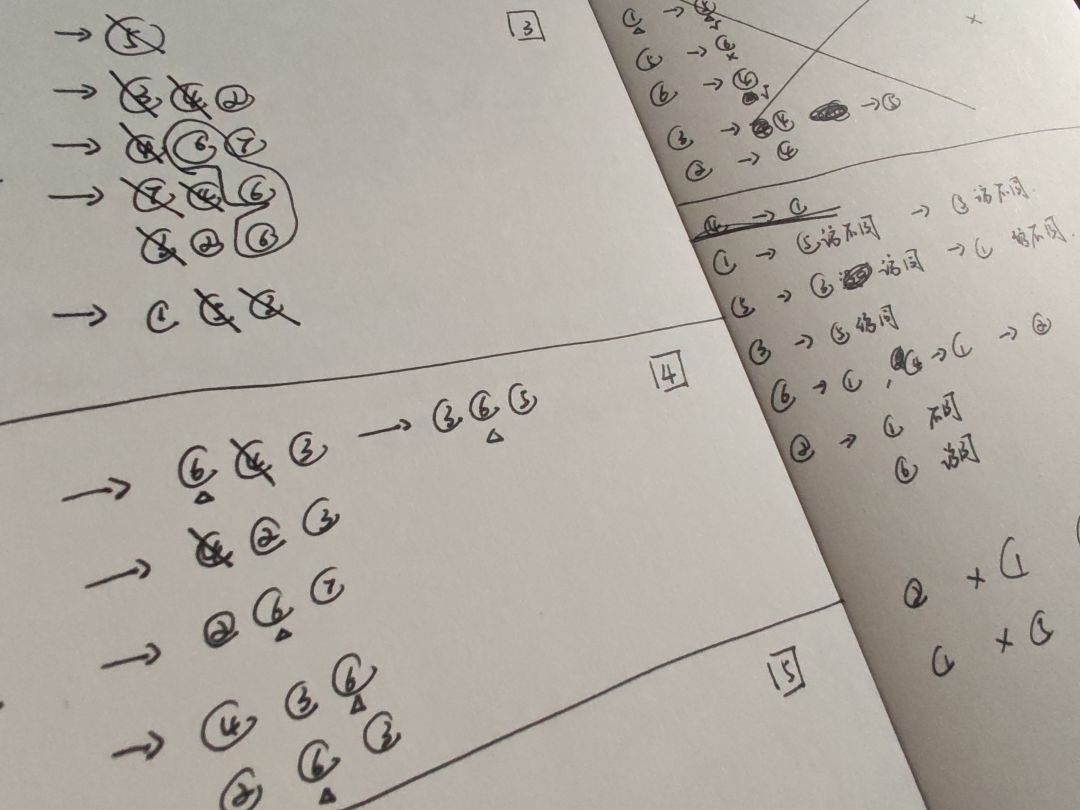 3
→ ⑤
→ ③ ④ ②
→ ④ ⑥ ⑦
→ ⑦ ④ ⑥
③ ② ⑥
→ ① ⑤ ②
4
→ ⑥ ④ ③ → ③ ⑥ ⑤
→ ④ ② ③
→ ② ⑥ ⑦
→ ④ ③ ⑥
② ⑥ ③
5
① →
⑤ → ⑥
⑥ → ④
③ → ④ → ⑤
② → ④
④ → ①
① → ⑤ 访不同 → ③ 访不同.
⑤ → ③ 访同 → ① 访不同.
③ → ⑤ 访同
⑥ → ① , ④ → ① → ②
② → ① 不同
⑥ 访同
② × ①
① × ③